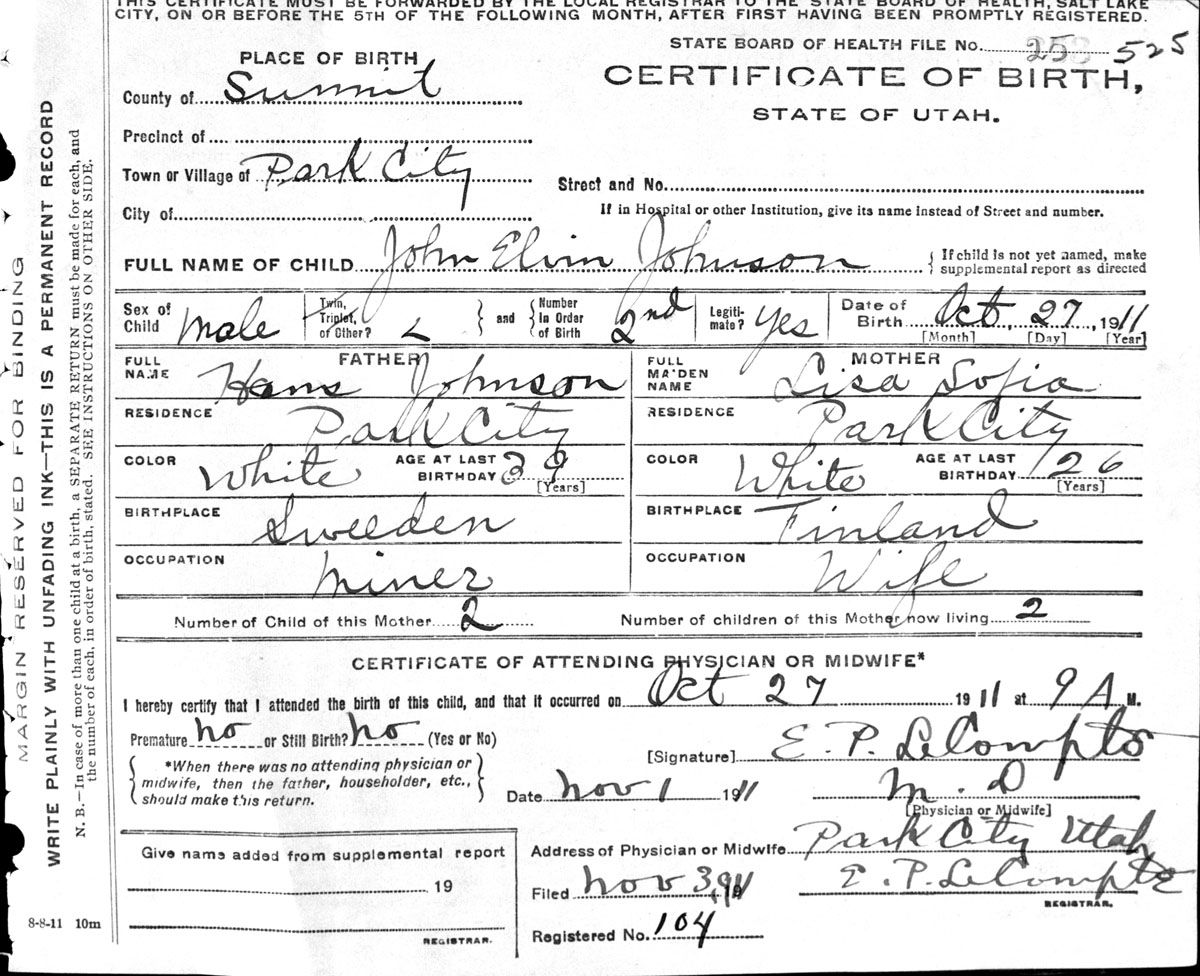 THIS CERTIFICATE MUST BE FORWARDED BY THE LOCAL REGISTRAR TO THE STATE BOARD OF HEALTH, SALT LAKE
CITY, ON OR BEFORE THE 5TH OF THE FOLLOWING MONTH, AFTER FIRST HAVING BEEN PROMPTLY REGISTERED.
STATE BOARD OF HEALTH FILE No. 258 525
PLACE OF BIRTH
CERTIFICATE OF BIRTH,
County of Summit
STATE OF UTAH.
Precinct of
Town or Village of Park City
Street and No.
City of
If in Hospital or other Institution, give its name instead of Street and number.
FULL NAME OF CHILD John Elvin Johnson
If child is not yet named, make
supplemental report as directed
Sex of Child Male
Twin, Triplet, or Other?
and
Number In Order of Birth 2nd
Legiti- mate? Yes
Date of Birth Oct, 27, 1911
[Month] [Day] [Year]
FATHER
FULL NAME Hans Johnson
MOTHER
FULL MAIDEN NAME Lisa Sofia
RESIDENCE Park City
RESIDENCE Park City
COLOR White AGE AT LAST BIRTHDAY 39 [Years]
COLOR White AGE AT LAST BIRTHDAY 26 [Years]
BIRTHPLACE Sweeden
BIRTHPLACE Finland
OCCUPATION Miner
OCCUPATION Wife
Number of Child of this Mother 2 Number of children of this Mother now living 2
CERTIFICATE OF ATTENDING PHYSICIAN OR MIDWIFE*
I hereby certify that I attended the birth of this child, and that it occurred on Oct 27 1911 at 9 A M.
Premature No or Still Birth? No (Yes or No)
[Signature] E. P. LeCompte
*When there was no attending physician or
midwife, then the father, householder, etc.,
should make this return.
Date Nov 1 1911
M. D
[Physician or Midwife]
Give name added from supplemental report
19
REGISTRAR.
Address of Physician or Midwife Park City Utah
Filed Nov 3, 1911 E. P. LeCompte
REGISTRAR.
Registered No. 104
8-8-11 10m
MARGIN RESERVED FOR BINDING
WRITE PLAINLY WITH UNFADING INK—THIS IS A PERMANENT RECORD
N. B.—In case of more than one child at a birth, a SEPARATE RETURN must be made for each, and
the number of each, in order of birth, stated. SEE INSTRUCTIONS ON OTHER SIDE.